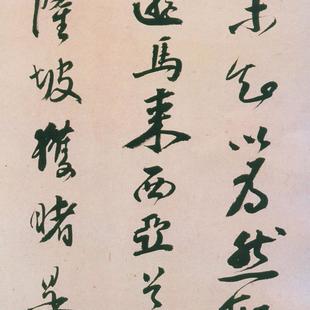 未知以為然
遊馬來西亞
隆坡獲睹